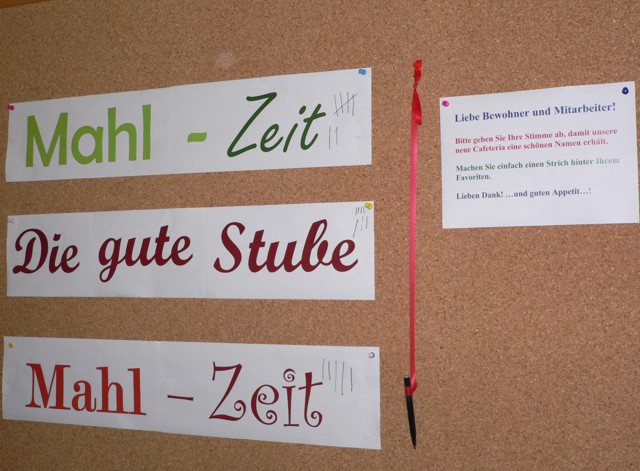 Mahl - Zeit
Die gute Stube
Mahl – Zeit
Liebe Bewohner und Mitarbeiter!
Bitte geben Sie Ihre Stimme ab, damit unsere
neue Cafeteria eine schönen Namen erhält.
Machen Sie einfach einen Strich hinter ihrem
Favoriten.
Lieben Dank! …und guten Appetit…!